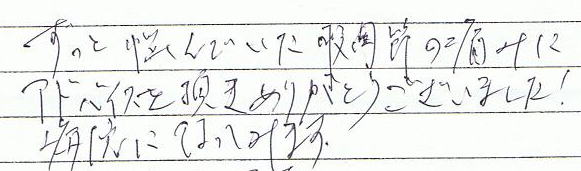 ずっと悩んでいた股関節の痛みに
アドバイスを頂きありがとうございました!
病院に行ってみます。